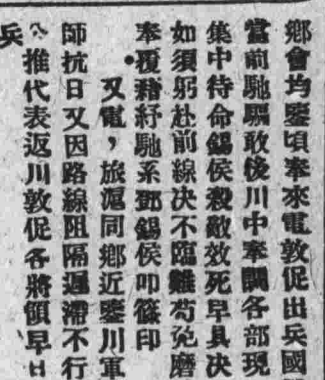 鄉會均鑒頃奉來電敦促出兵國
當前馳驅敢後川中奉調各部現
集中待命錫侯殺敵效死早具決
如須躬赴前線决不臨難苟免磨
奉覆藉紓馳系鄧錫侯叩篠印
又電，旅滬同鄉近鑒川軍
師抗日又因路線阻隔遲滯不行
公推代表返川敦促各將領早日
兵